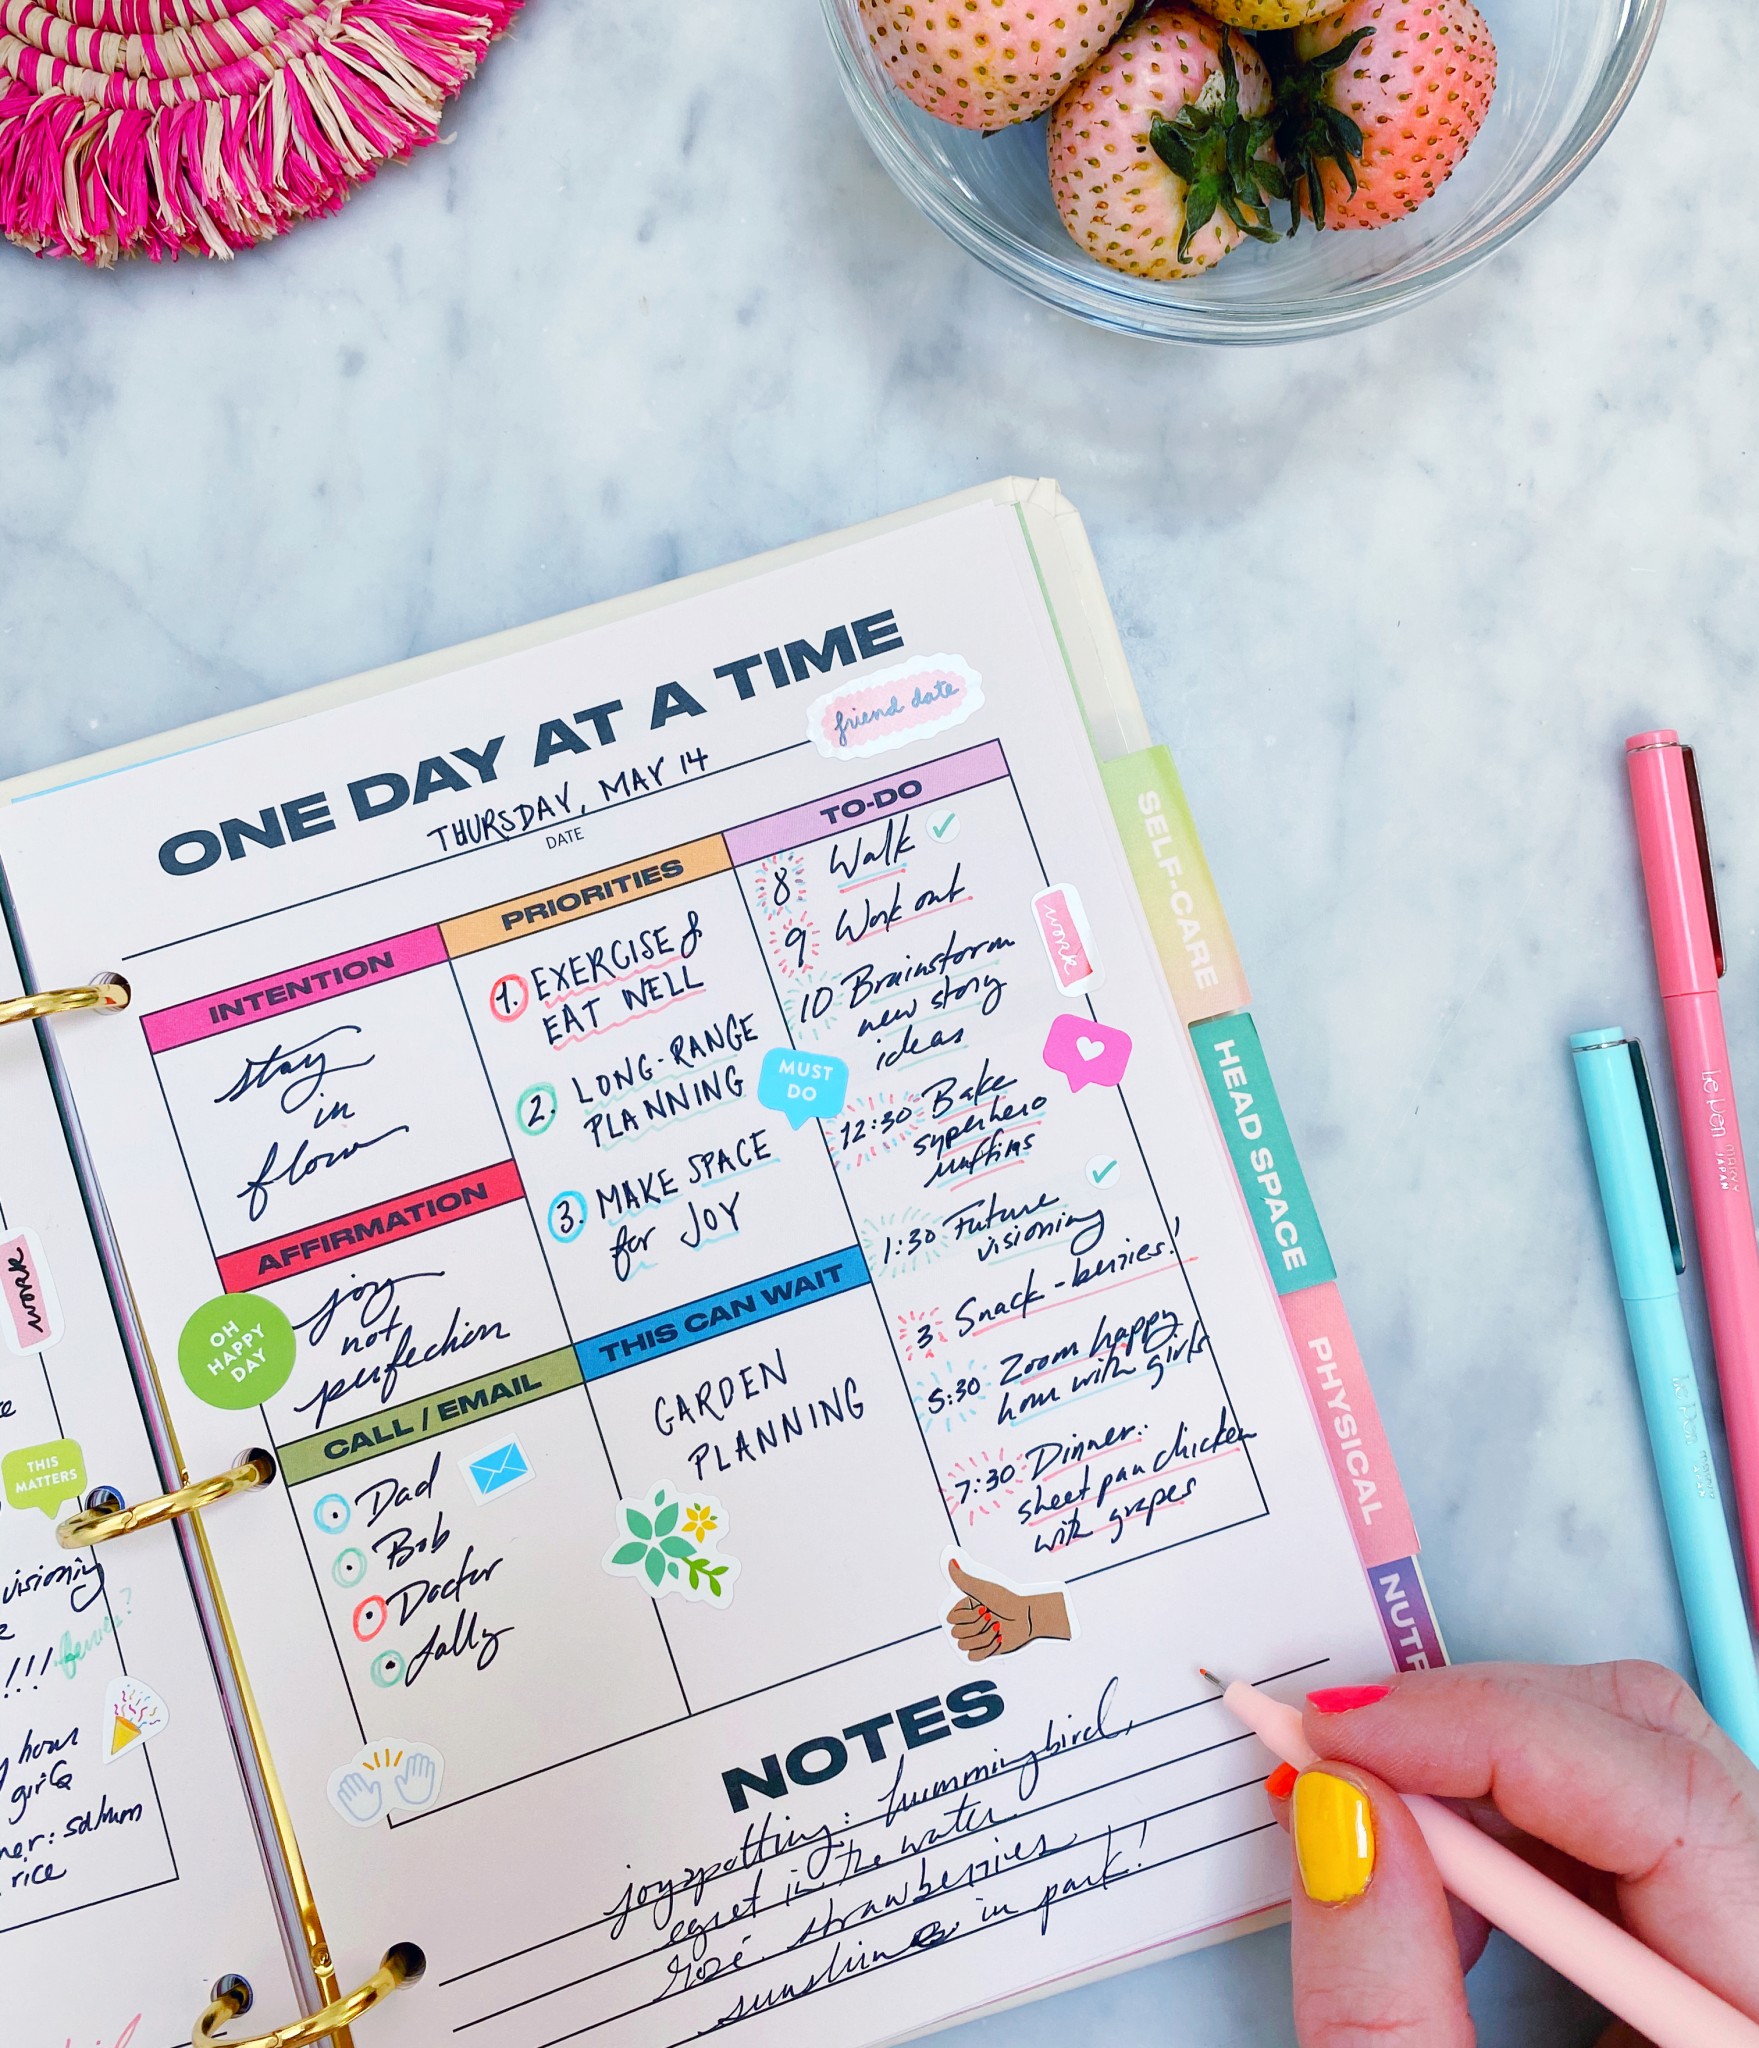 ONE DAY AT A TIME
friend date
THURSDAY, MAY 14
DATE
INTENTION
stay
in
flow
AFFIRMATION
joy
not
perfection
OH
HAPPY
DAY
CALL / EMAIL
Dad
Bob
Doctor
Sally
PRIORITIES
1. EXERCISE &
EAT WELL
2. LONG-RANGE
PLANNING
3. MAKE SPACE
for JOY
MUST
DO
THIS CAN WAIT
GARDEN
PLANNING
TO-DO
8 Walk
9 Work out
10 Brainstorm
new story
ideas
work
12:30 Bake
superhero
muffins
1:30 Future
visioning
3 Snack - berries!
5:30 Zoom happy
hour with girls
7:30 Dinner:
sheet pan chicken
with grapes
NOTES
joyspotting: hummingbird,
egret in the water
rosé strawberries
in park!
SELF-CARE
HEAD SPACE
PHYSICAL
NUTR
work
THIS
MATTERS
visioning
!!!
hour
girls
rice
le pen
MARVY
JAPAN